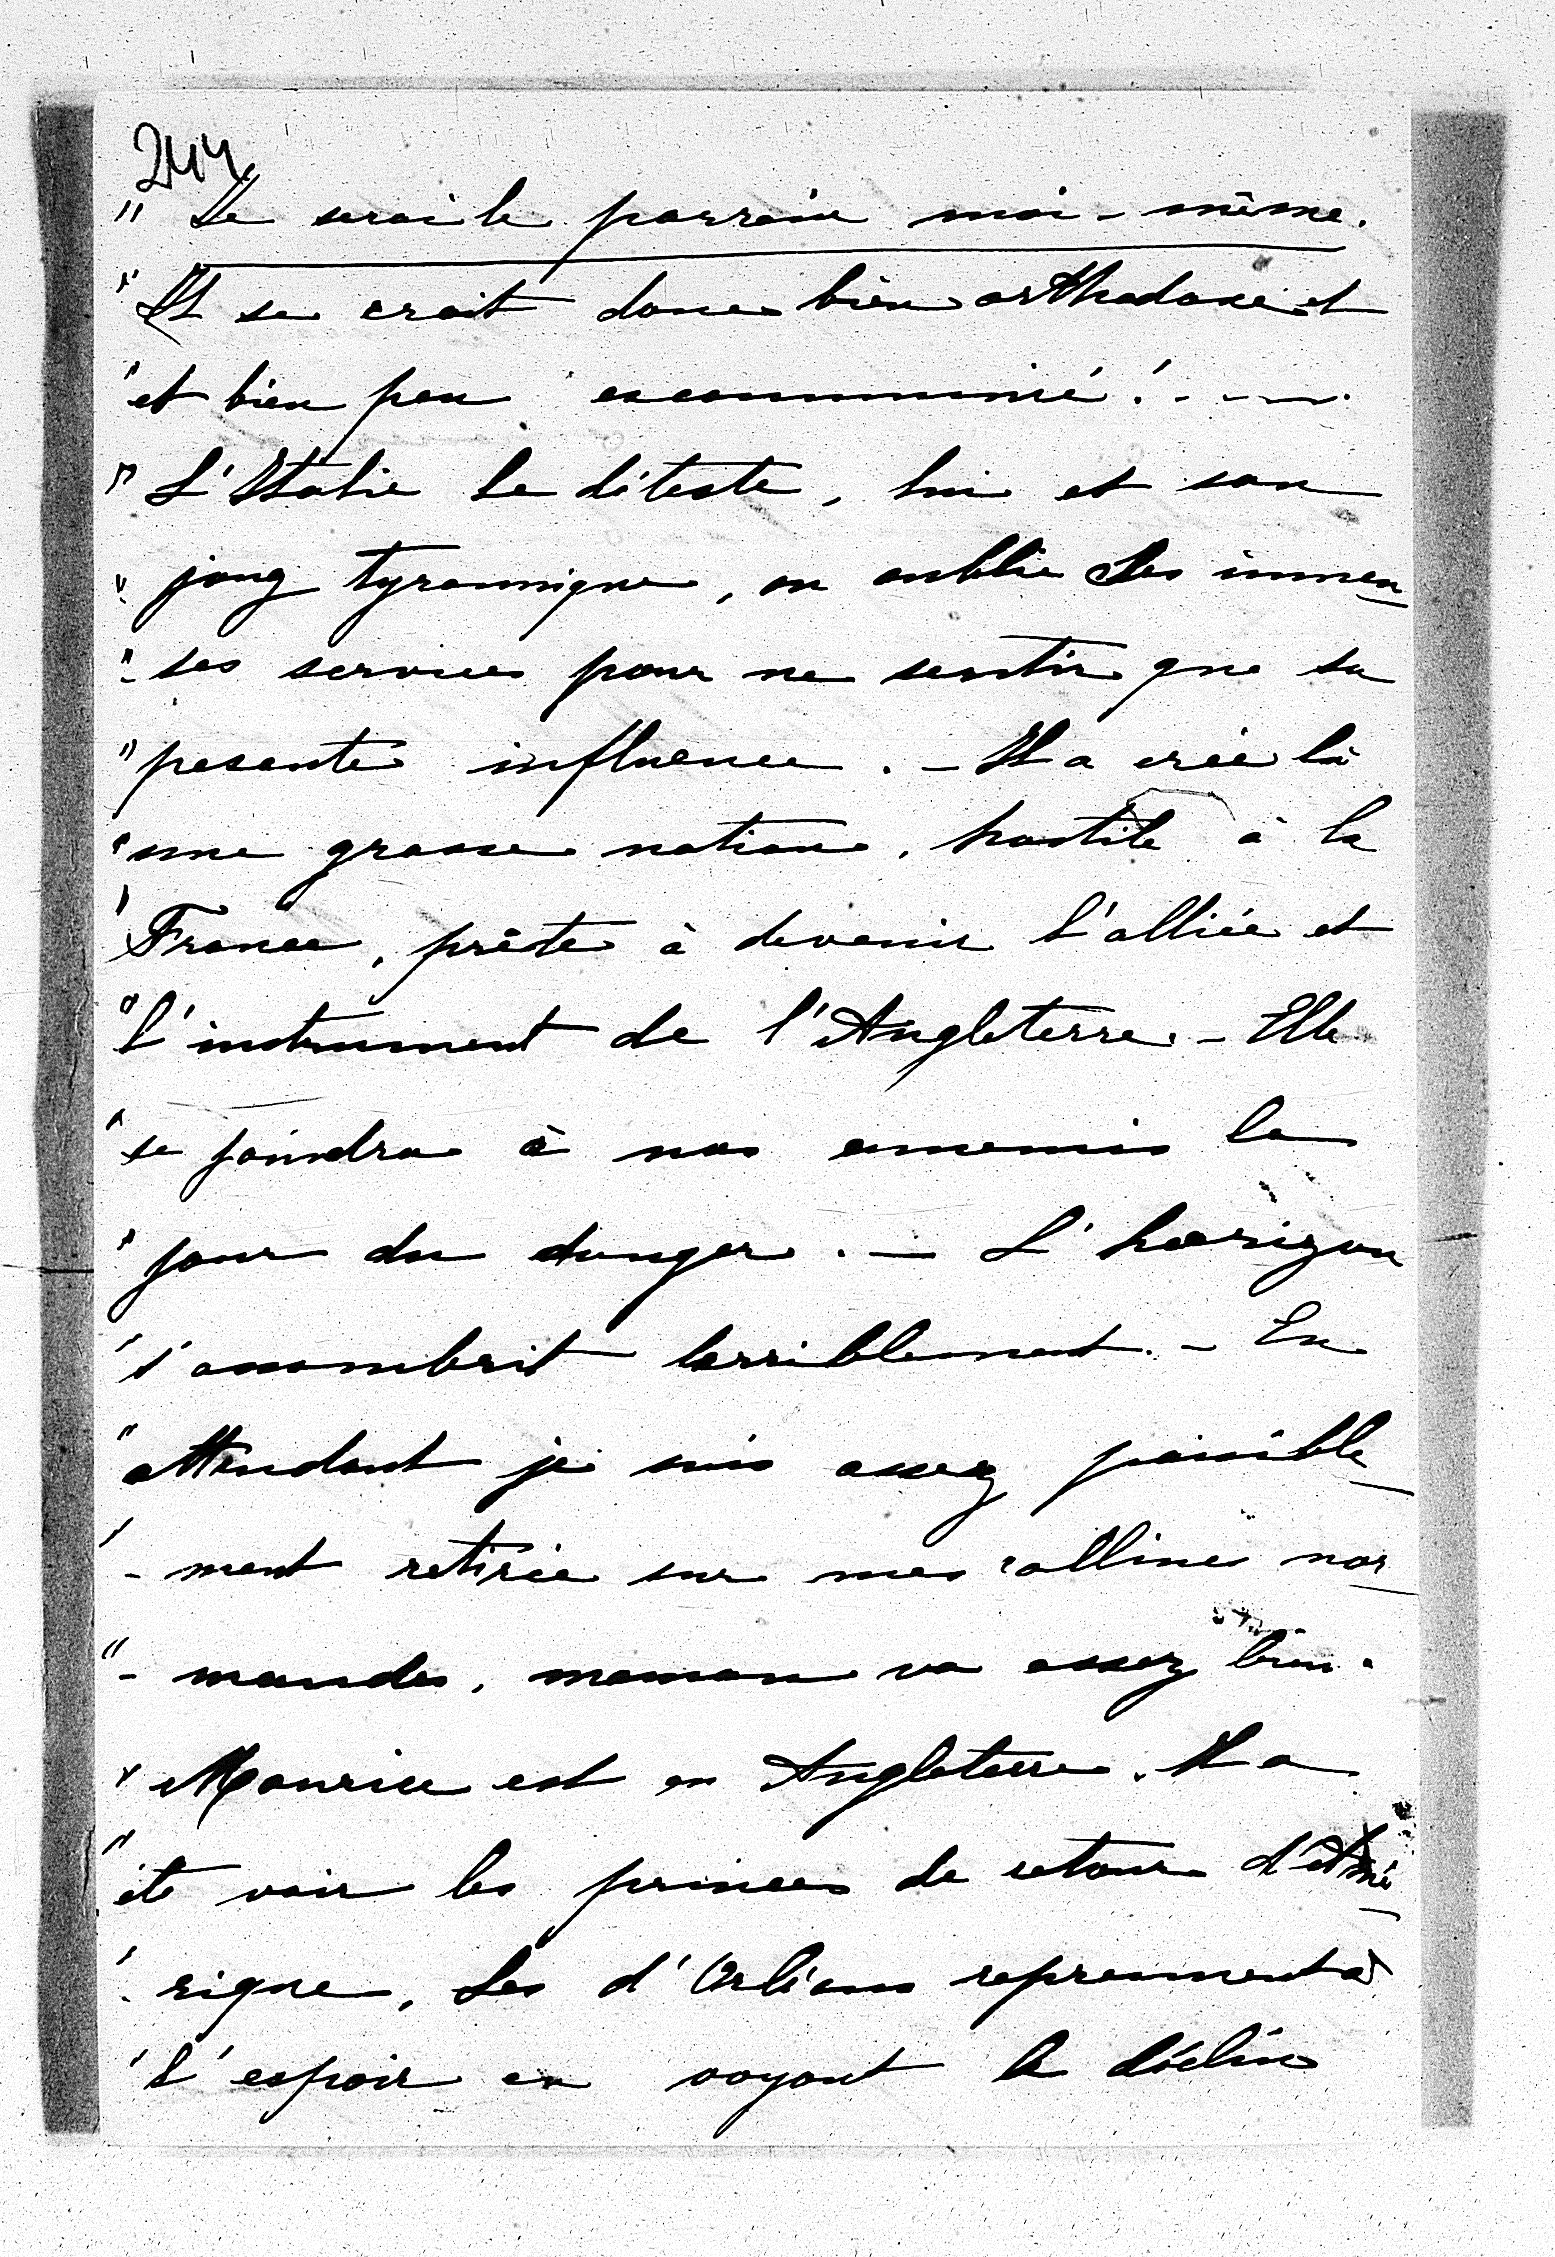 244
" Je serai le parrain moi-même.
" Il se croit donc bien orthodoxe et
" et bien peu excommunié ! - - - -
" L'Italie le déteste, lui et son
" joug tyrannique, on oublie les immen
" - ses services pour ne sentir que sa
" pesante influence. - Il a créé là
" une grosse nation, hostile à la
" France, prête à devenir l'alliée et
" l'instrument de l'Angleterre. - Elle
" se joindra à nos ennemis le
" jour du danger. - L'horizon
" s'assombrit terriblement. - En
" attendant je suis assez paisible_
" - ment retirée sur mes collines nor_
" - mandes, maman va assez bien.
" Maurice est en Angleterre. Il a
" été voir les princes de retour d'Amé_
" - rique. Les d'Orléans reprennent
" l'espoir en voyant le déclin